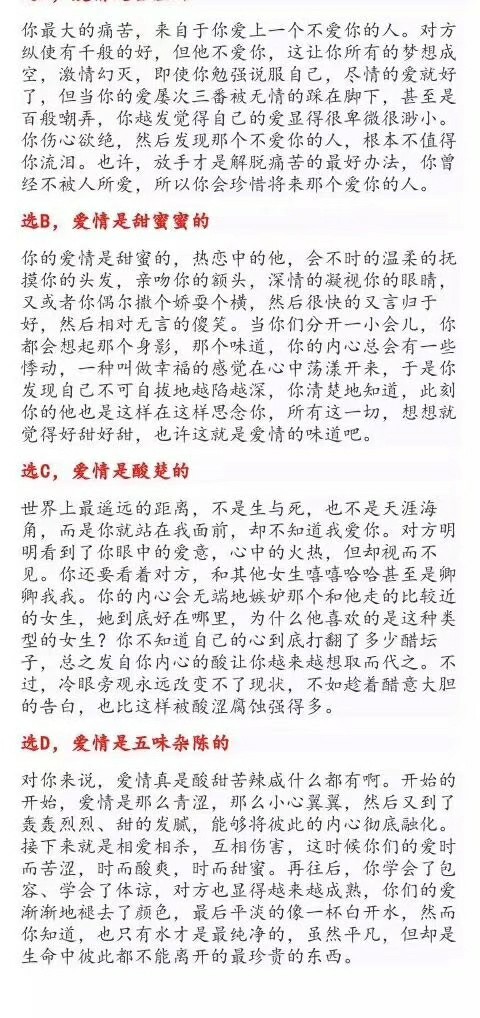 你最大的痛苦，来自于你爱上一个不爱你的人。对方
纵使有千般的好，但他不爱你，这让你所有的梦想成
空，激情幻灭，即使你勉强说服自己，尽情的爱就好
了，但当你的爱屡次三番被无情的踩在脚下，甚至是
百般嘲弄，你越发觉得自己的爱显得很卑微很渺小。
你伤心欲绝，然后发现那个不爱你的人，根本不值得
你流泪。也许，放手才是解脱痛苦的最好办法，你曾
经不被人所爱，所以你会珍惜将来那个爱你的人。
选B，爱情是甜蜜蜜的
你的爱情是甜蜜的，热恋中的他，会不时的温柔的抚
摸你的头发，亲吻你的额头，深情的凝视你的眼睛，
又或者你偶尔撒个娇耍个横，然后很快的又言归于
好，然后相对无言的傻笑。当你们分开一小会儿，你
都会想起那个身影，那个味道，你的内心总会有一些
悸动，一种叫做幸福的感觉在心中荡漾开来，于是你
发现自己不可自拔地越陷越深，你清楚地知道，此刻
你的他也是这样在这样思念你，所有这一切，想想就
觉得好甜好甜，也许这就是爱情的味道吧。
选C，爱情是酸楚的
世界上最遥远的距离，不是生与死，也不是天涯海
角，而是你就站在我面前，却不知道我爱你。对方明
明看到了你眼中的爱意，心中的火热，但却视而不
见。你还要看着对方，和其他女生嘻嘻哈哈甚至是卿
卿我我。你的内心会无端地嫉妒那个和他走的比较近
的女生，她到底好在哪里，为什么他喜欢的是这种类
型的女生？你不知道自己的心到底打翻了多少醋坛
子，总之发自你内心的酸让你越来越想取而代之。不
过，冷眼旁观永远改变不了现状，不如趁着醋意大胆
的告白，也比这样被酸涩腐蚀强得多。
选D，爱情是五味杂陈的
对你来说，爱情真是酸甜苦辣咸什么都有啊。开始的
开始，爱情是那么青涩，那么小心翼翼，然后又到了
轰轰烈烈、甜的发腻，能够将彼此的内心彻底融化。
接下来就是相爱相杀，互相伤害，这时候你们的爱时
而苦涩，时而酸爽，时而甜蜜。再往后，你学会了包
容、学会了体谅，对方也显得越来越成熟，你们的爱
渐渐地褪去了颜色，最后平淡的像一杯白开水，然而
你知道，也只有水才是最纯净的，虽然平凡，但却是
生命中彼此都不能离开的最珍贵的东西。